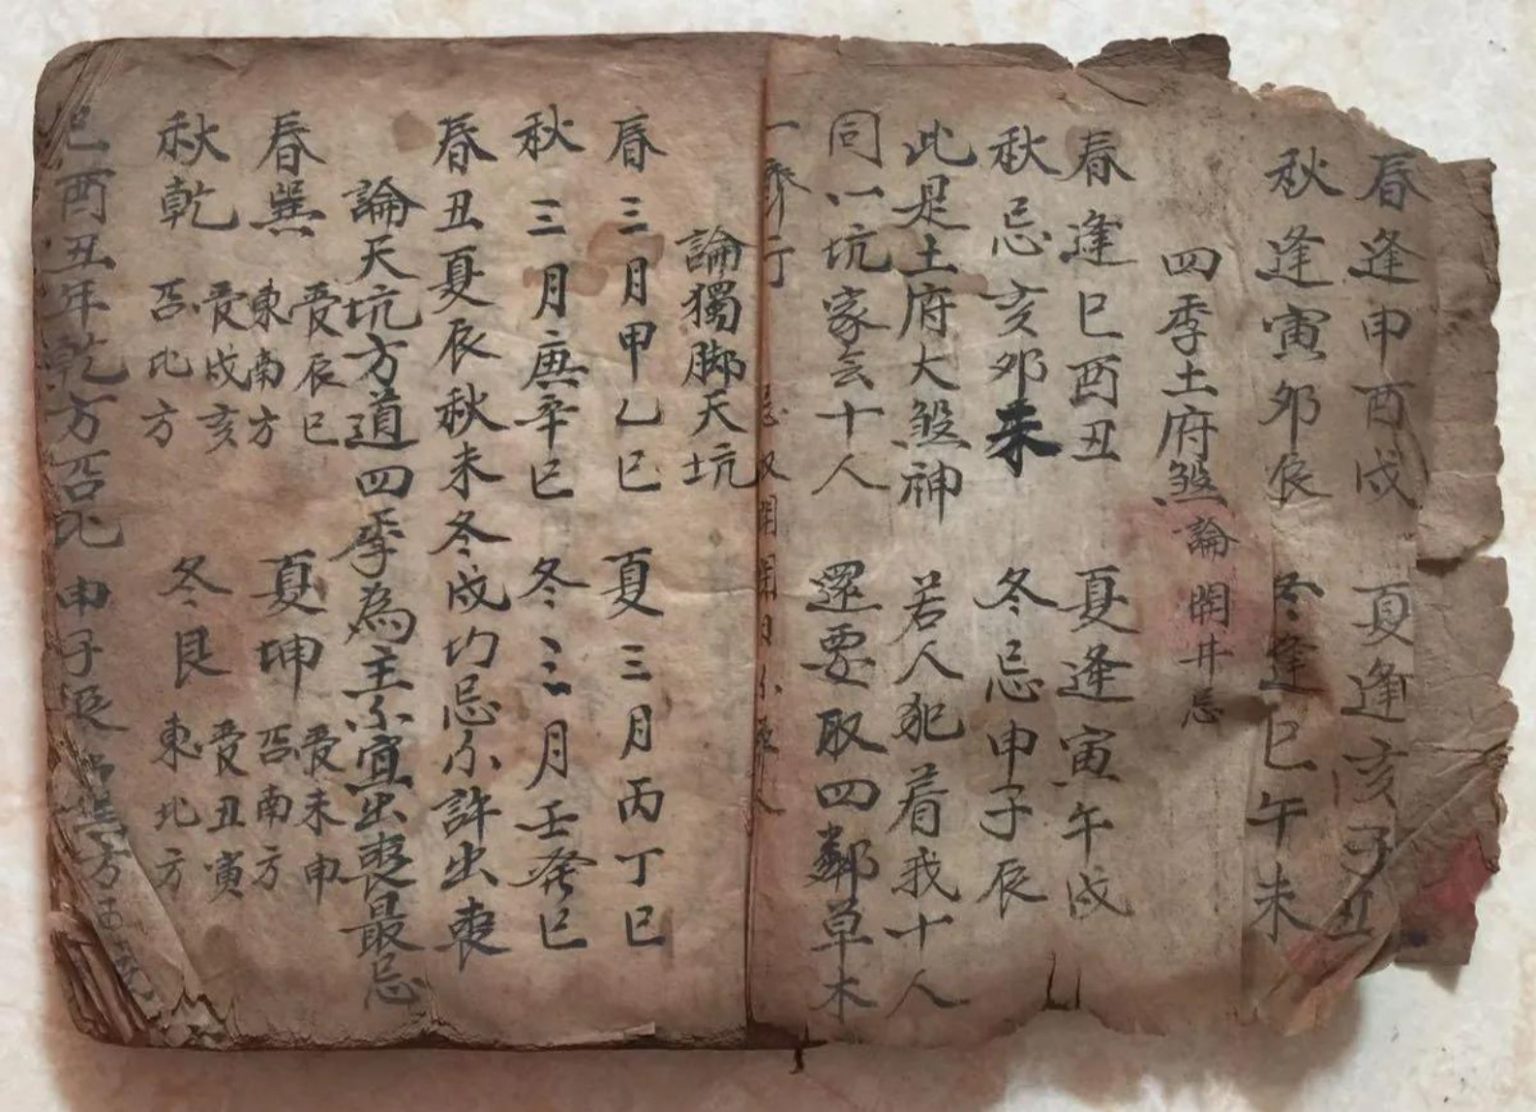 春逢申酉戌　夏逢亥子丑
秋逢寅卯辰　冬逢巳午未
四季土府煞論開井忌
春逢巳酉丑　夏逢寅午戌
秋忌亥卯未　冬忌申子辰
此是土府大煞神　若人犯着我十人
同一坑家去十人　還要取四鄰草木
論獨脚天坑
春三月甲乙巳　夏三月丙丁巳
秋三月庚辛巳　冬三月壬癸巳
春丑夏辰秋未冬戌切忌不許出喪
論天坑方道四季為主不宜出喪最忌
春巽　受辰巳　東南方　夏坤　受未申　西南方
秋乾　受戌亥　西北方　冬艮　受丑寅　東北方
巳酉丑年乾方西北　申子辰　巽方